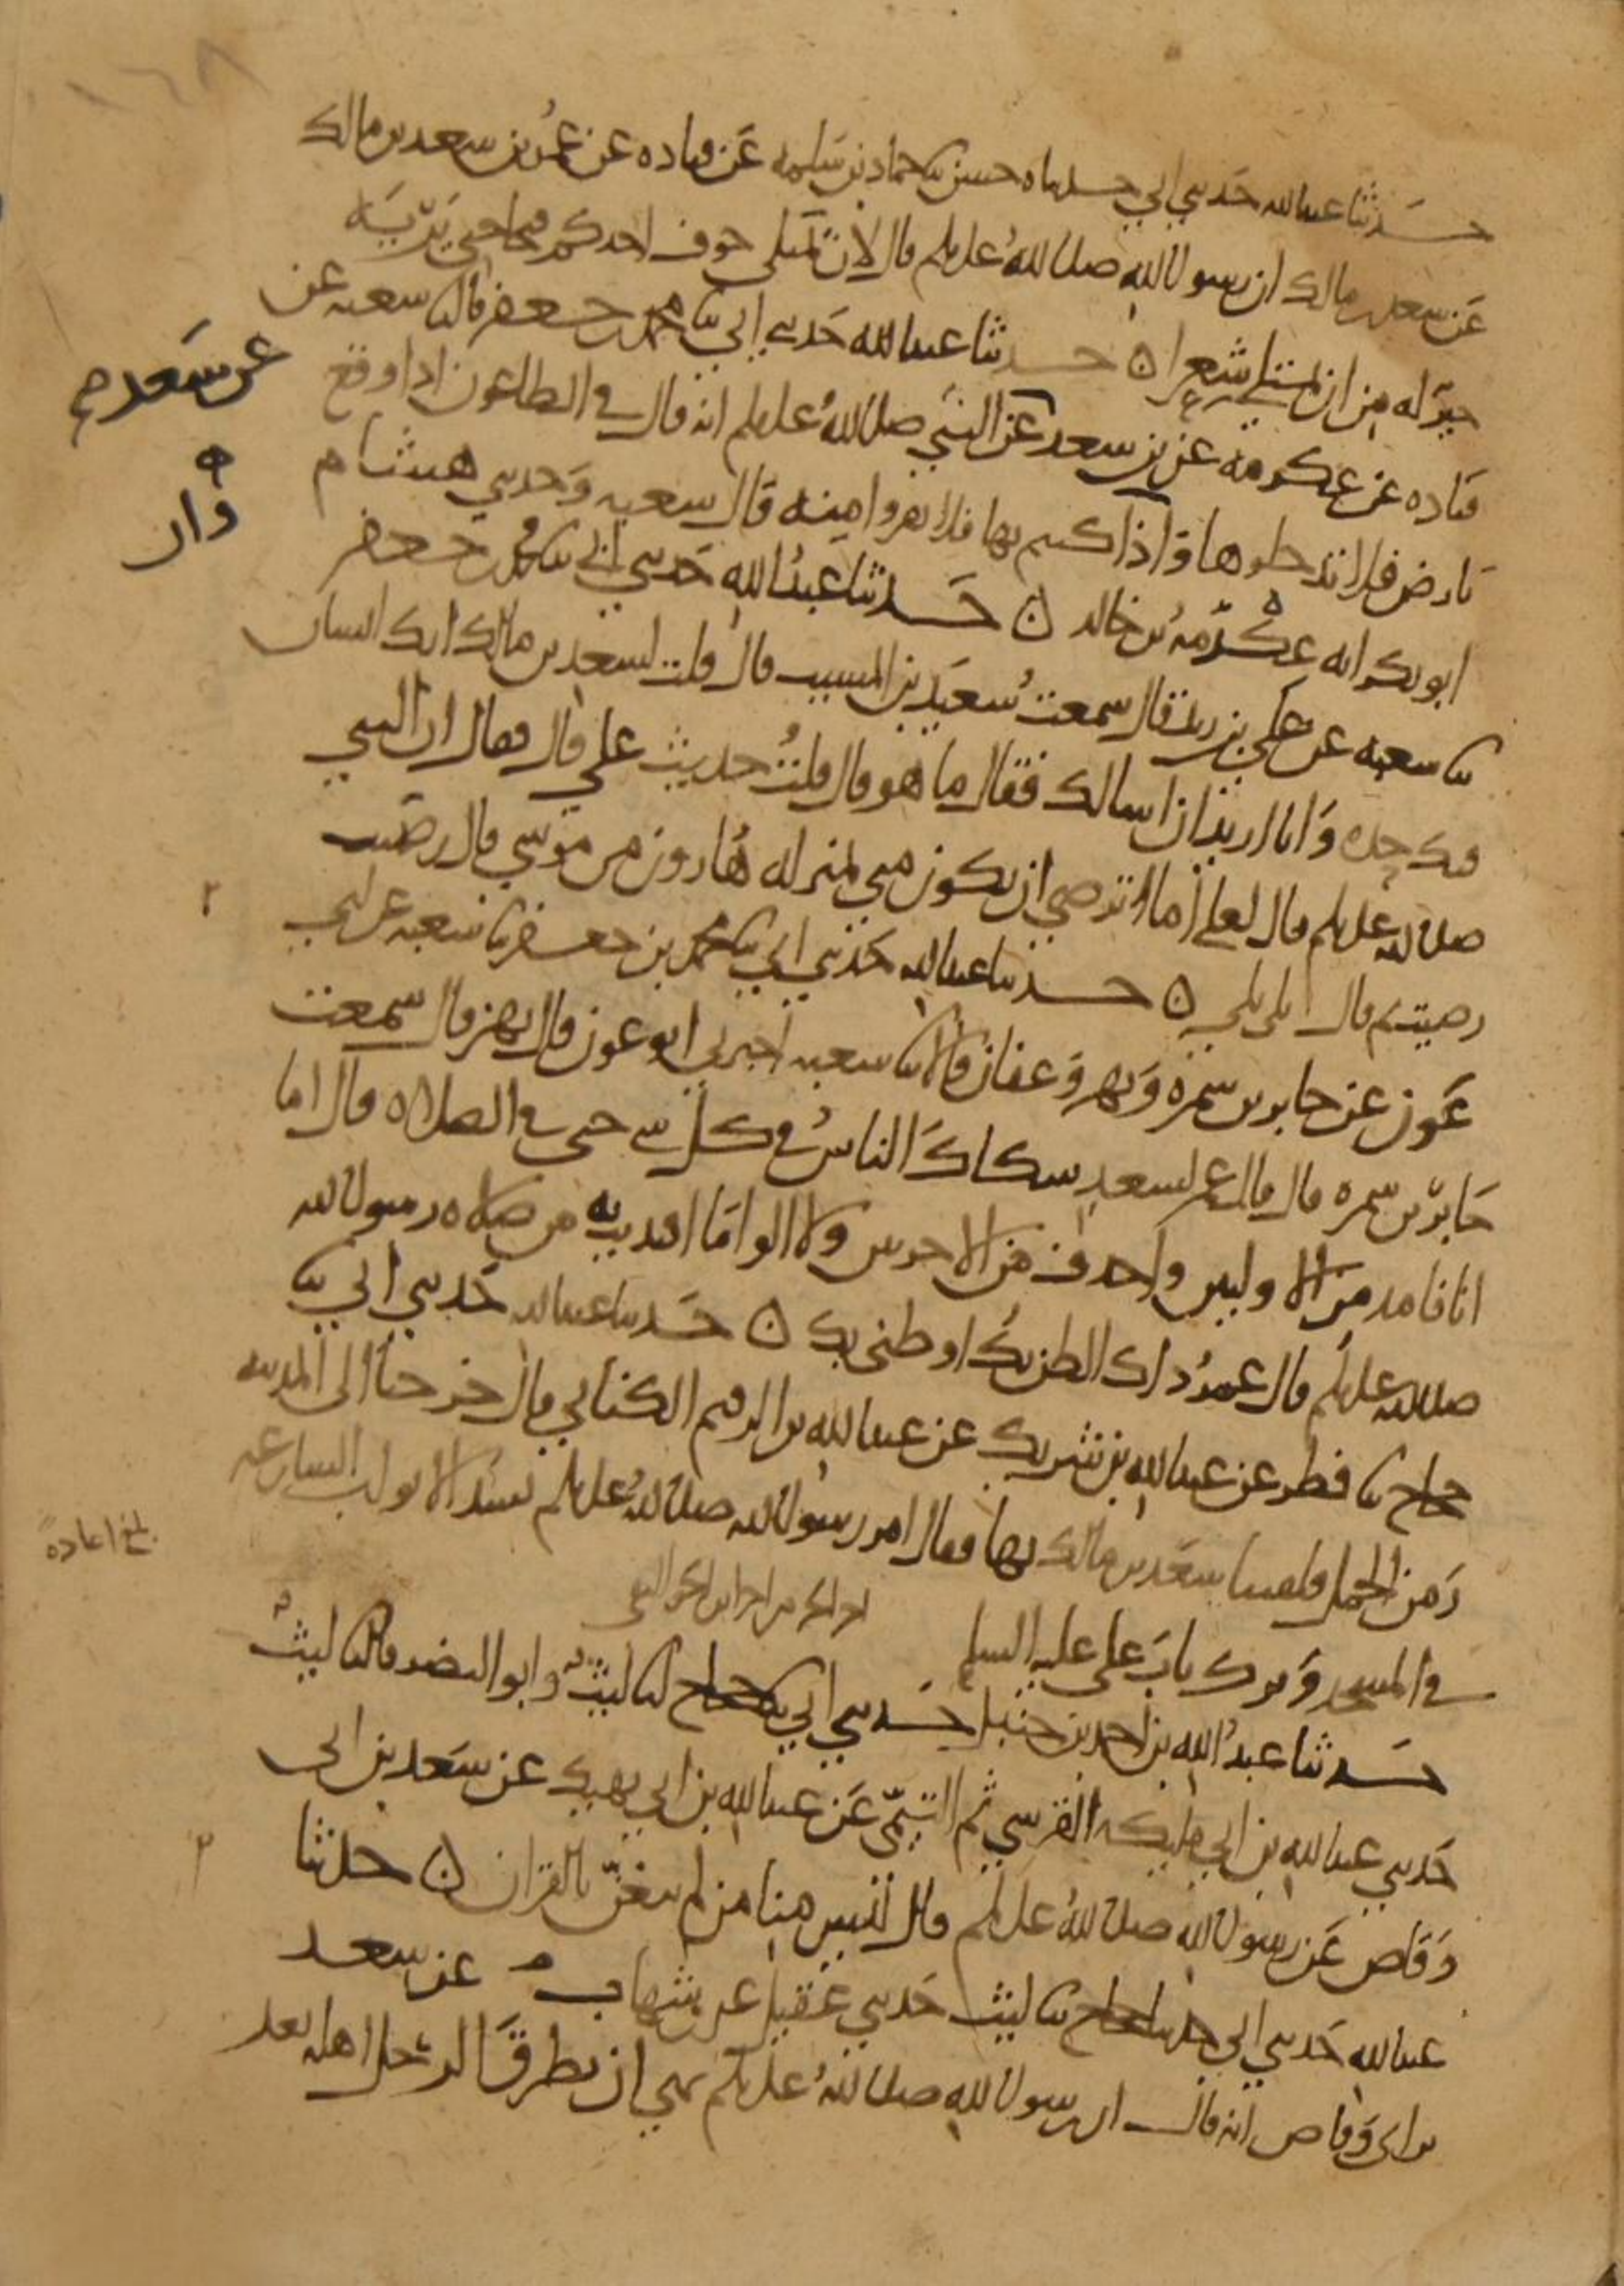 ١٦٨
حدثنا عبدالله حدثني ابي حدثناه حسن ثنا حماد بن سلمه عن قتاده عن عمر بن سعد بن مالك
عن سعد بن مالك ان رسول الله صلى الله عليه وسلم قال لان تمتلى جوف احدكم قيحا حتى يريه
خير له من ان يمتلى شعرا ه حدثنا عبدالله حدثني ابي ثنا محمد بن جعفر قال ثنا شعبه عن
قتاده عن عكرمه عن بن سعد عن النبي صلى الله عليه وسلم انه قال في الطاعون اذا وقع
عن سعد
بارض فلا تدخلوها واذا كنتم بها فلا تفروا منه قال شعبه وحدثني هشام
وان
ابو بكر انه عكرمه بن خالد ه حدثنا عبد الله حدثني ابي ثنا محمد بن جعفر
ثنا شعبه عن علي بن زيد قال سمعت سعيد بن المسيب قال قلت لسعد بن مالك انك انسان
فيك حده وانا اريد ان اسالك فقال ما هو قال قلت حديث علي قال فقال ان النبي
صلى الله عليه وسلم قال لعلي اما ترضى ان تكون مني بمنزله هارون من موسى قال رضيت
رضيت ثم قال بلى بلى ه حدثنا عبدالله حدثني ابي ثنا محمد بن جعفر ثنا شعبه عن ابي
عون عن جابر بن سمره وبهز وعفان قالا ثنا شعبه اخبرني ابو عون قال بهز قال سمعت
جابر بن سمره قال قال عمر لسعد شكاك الناس في كل شي حتى في الصلاه قال اما
انا فامد من الاوليين واحذف من الاخريين ولا الو ما اقتديت به من صلاه رسول الله
صلى الله عليه وسلم قال عمر ذاك الظن بك او ظني بك ه حدثنا عبدالله حدثني ابي ثنا
حجاج ثنا فطر عن عبدالله بن شريك عن عبدالله بن الرقيم الكناني قال خرجنا الى المدينه
زمن الجمل فلقينا سعد بن مالك بها فقال امر رسول الله صلى الله عليه وسلم بسد الابواب الشارعه
بلغ اعادة
في المسجد وترك باب علي عليه السلم
حدثنا عبد الله بن احمد بن حنبل حدثني ابي ثنا حجاج انا ليث وابو النضر قال ثنا ليث
حدثني عبدالله بن ابي مليكه القرشي ثم التيمي عن عبدالله بن ابي نهيك عن سعد بن ابي
وقاص عن رسول الله صلى الله عليه وسلم قال ليس منا من لم يتغن بالقران ه حدثنا
عبدالله حدثني ابي حدثنا حجاج ثنا ليث حدثني عقيل عن بن شهاب عن سعد
بن ابي وقاص انه قال ان رسول الله صلى الله عليه وسلم نهى ان يطرق الرجل اهله بعد